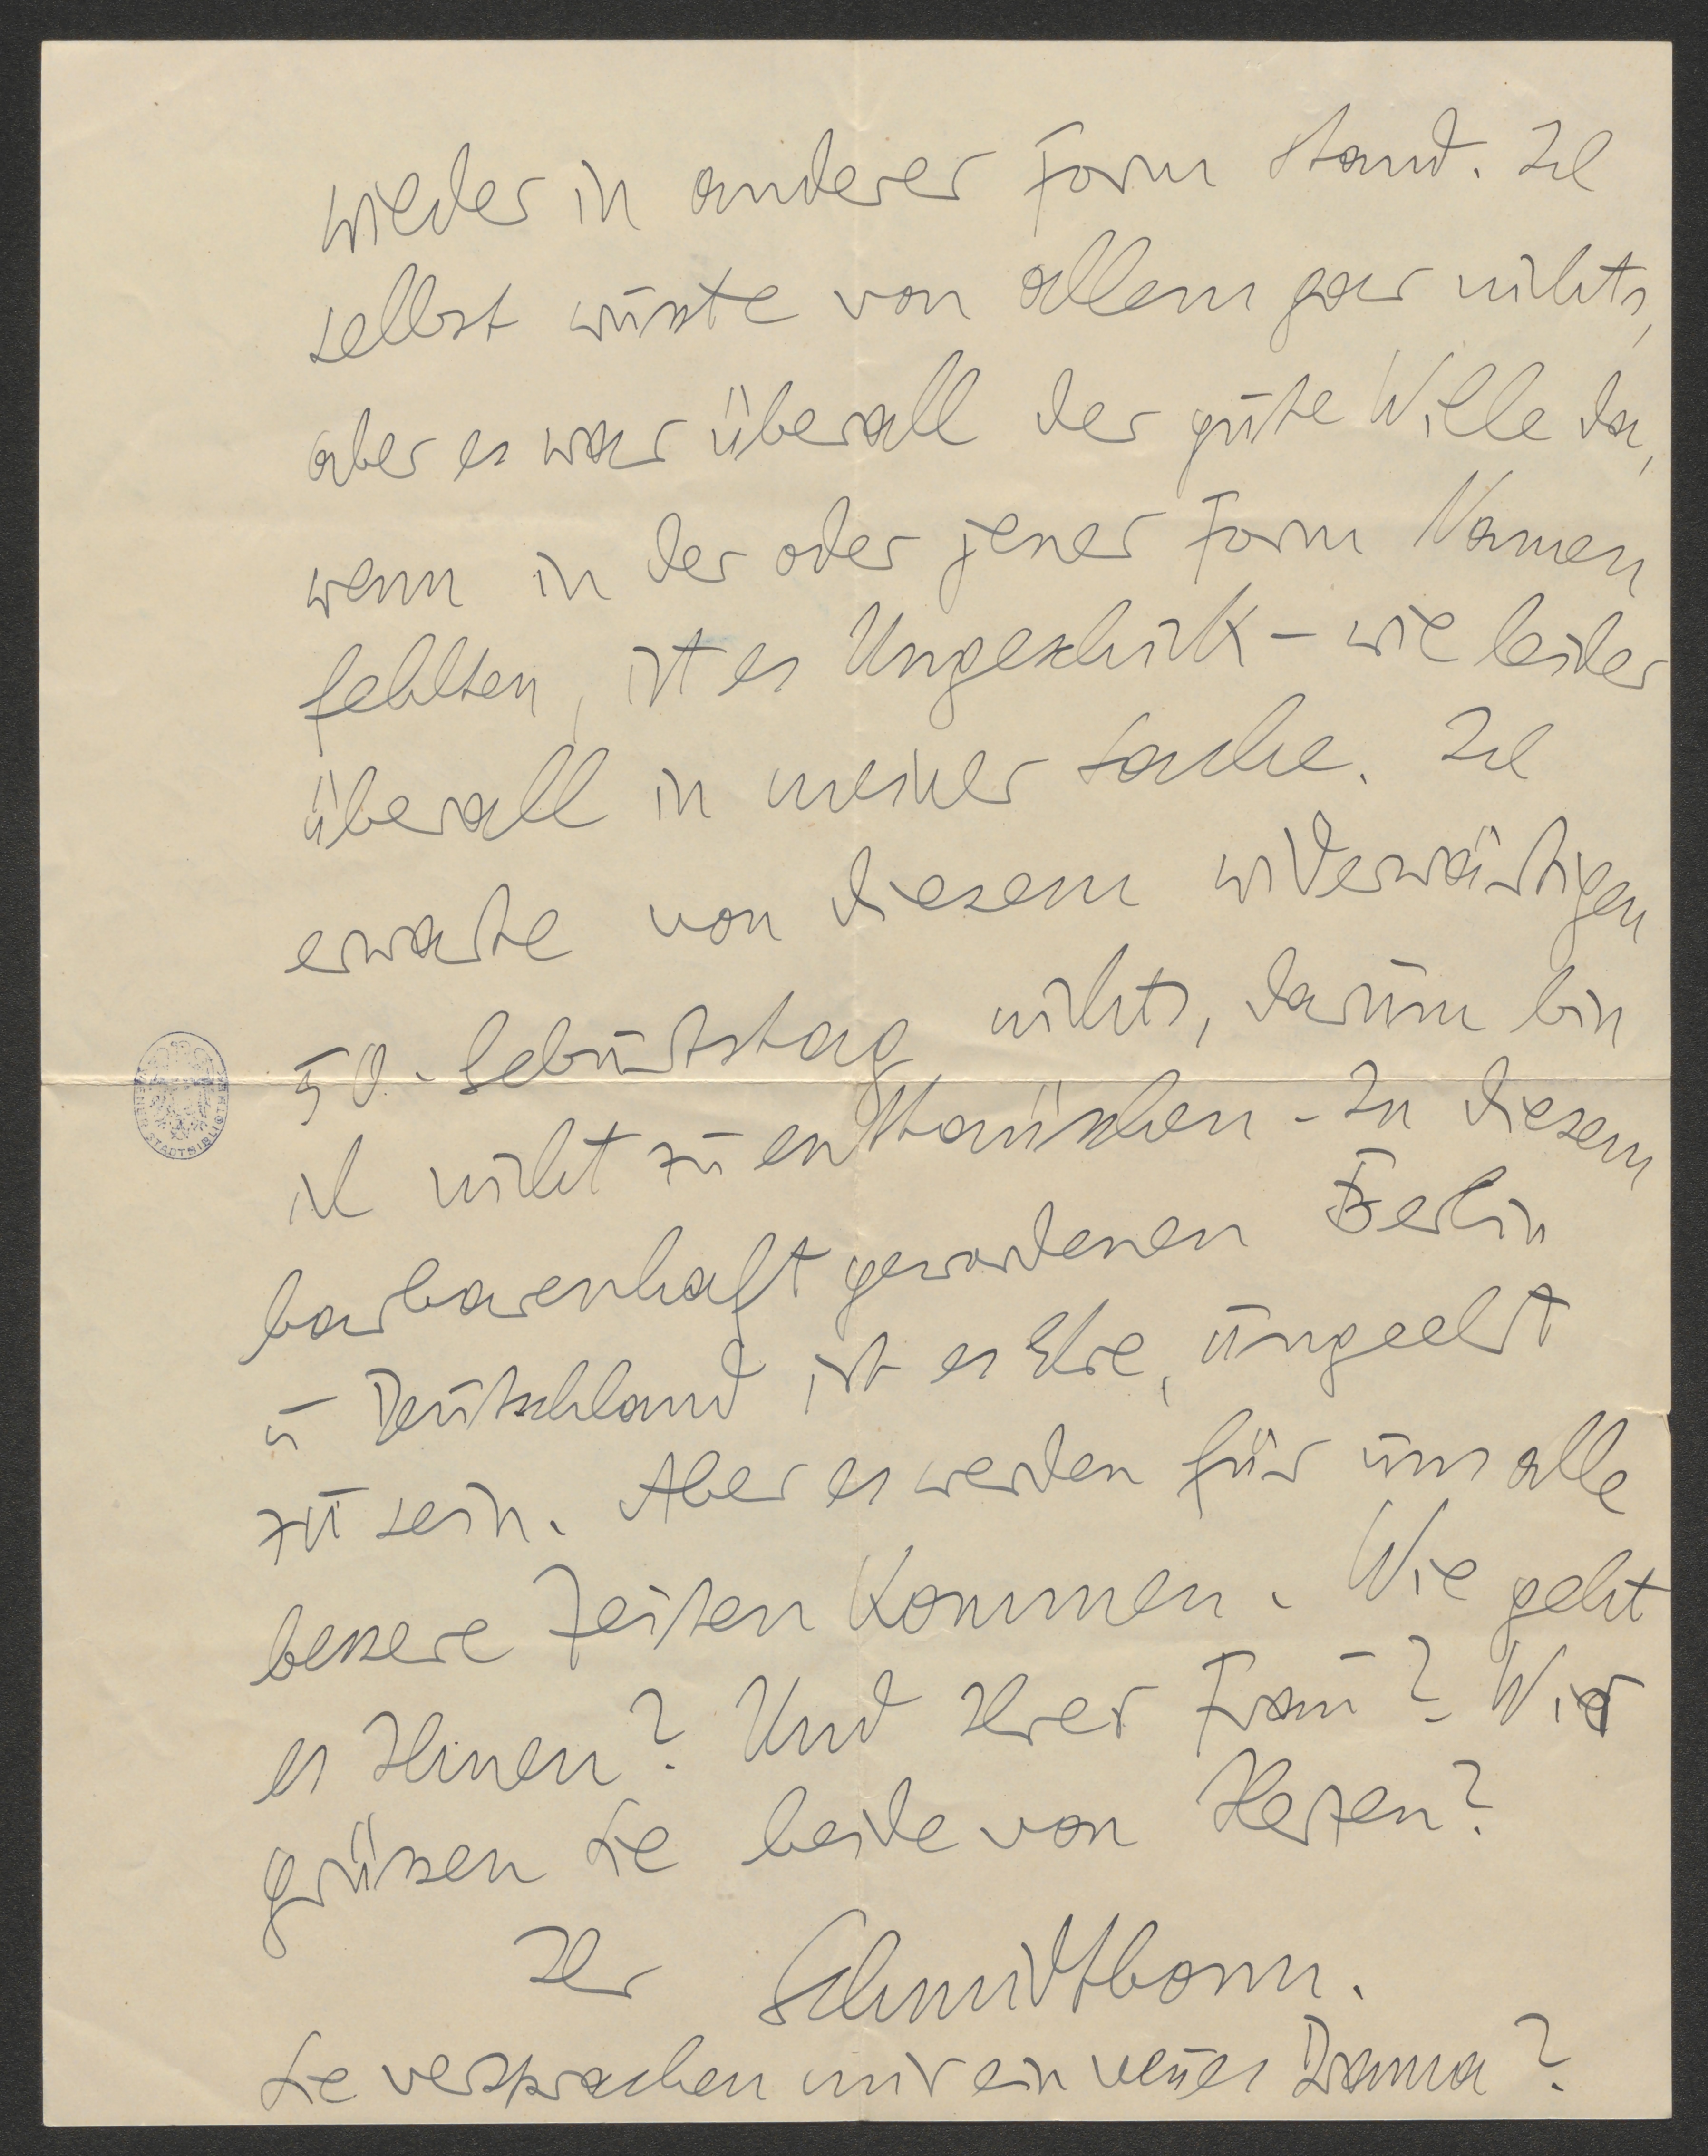 wieder in anderer Form stand. Ich
selbst wusste von allem gar nichts,
aber es war überall der gute Wille da,
wenn in der oder jener Form Namen
fehlten, ist es Ungeschick – wie leider
überall in meiner Sache. Ich
erwarte von diesem widerwärtigen
50. Geburtstag nichts, darum bin
ich nicht zu enttäuschen – In diesem
barbarenhaft gewordenen Berlin
u Deutschland ist es Ehre, ungeehrt
zu sein. Aber es werden für uns alle
bessere Zeiten kommen. Wie geht
es Ihnen? Und Ihrer Frau? Wir
grüssen Sie beide von Herzen?
Ihr Schmidtbonn.
Sie versprachen mir ein neues Drama?
WIENER STADTBIBLIOTHEK